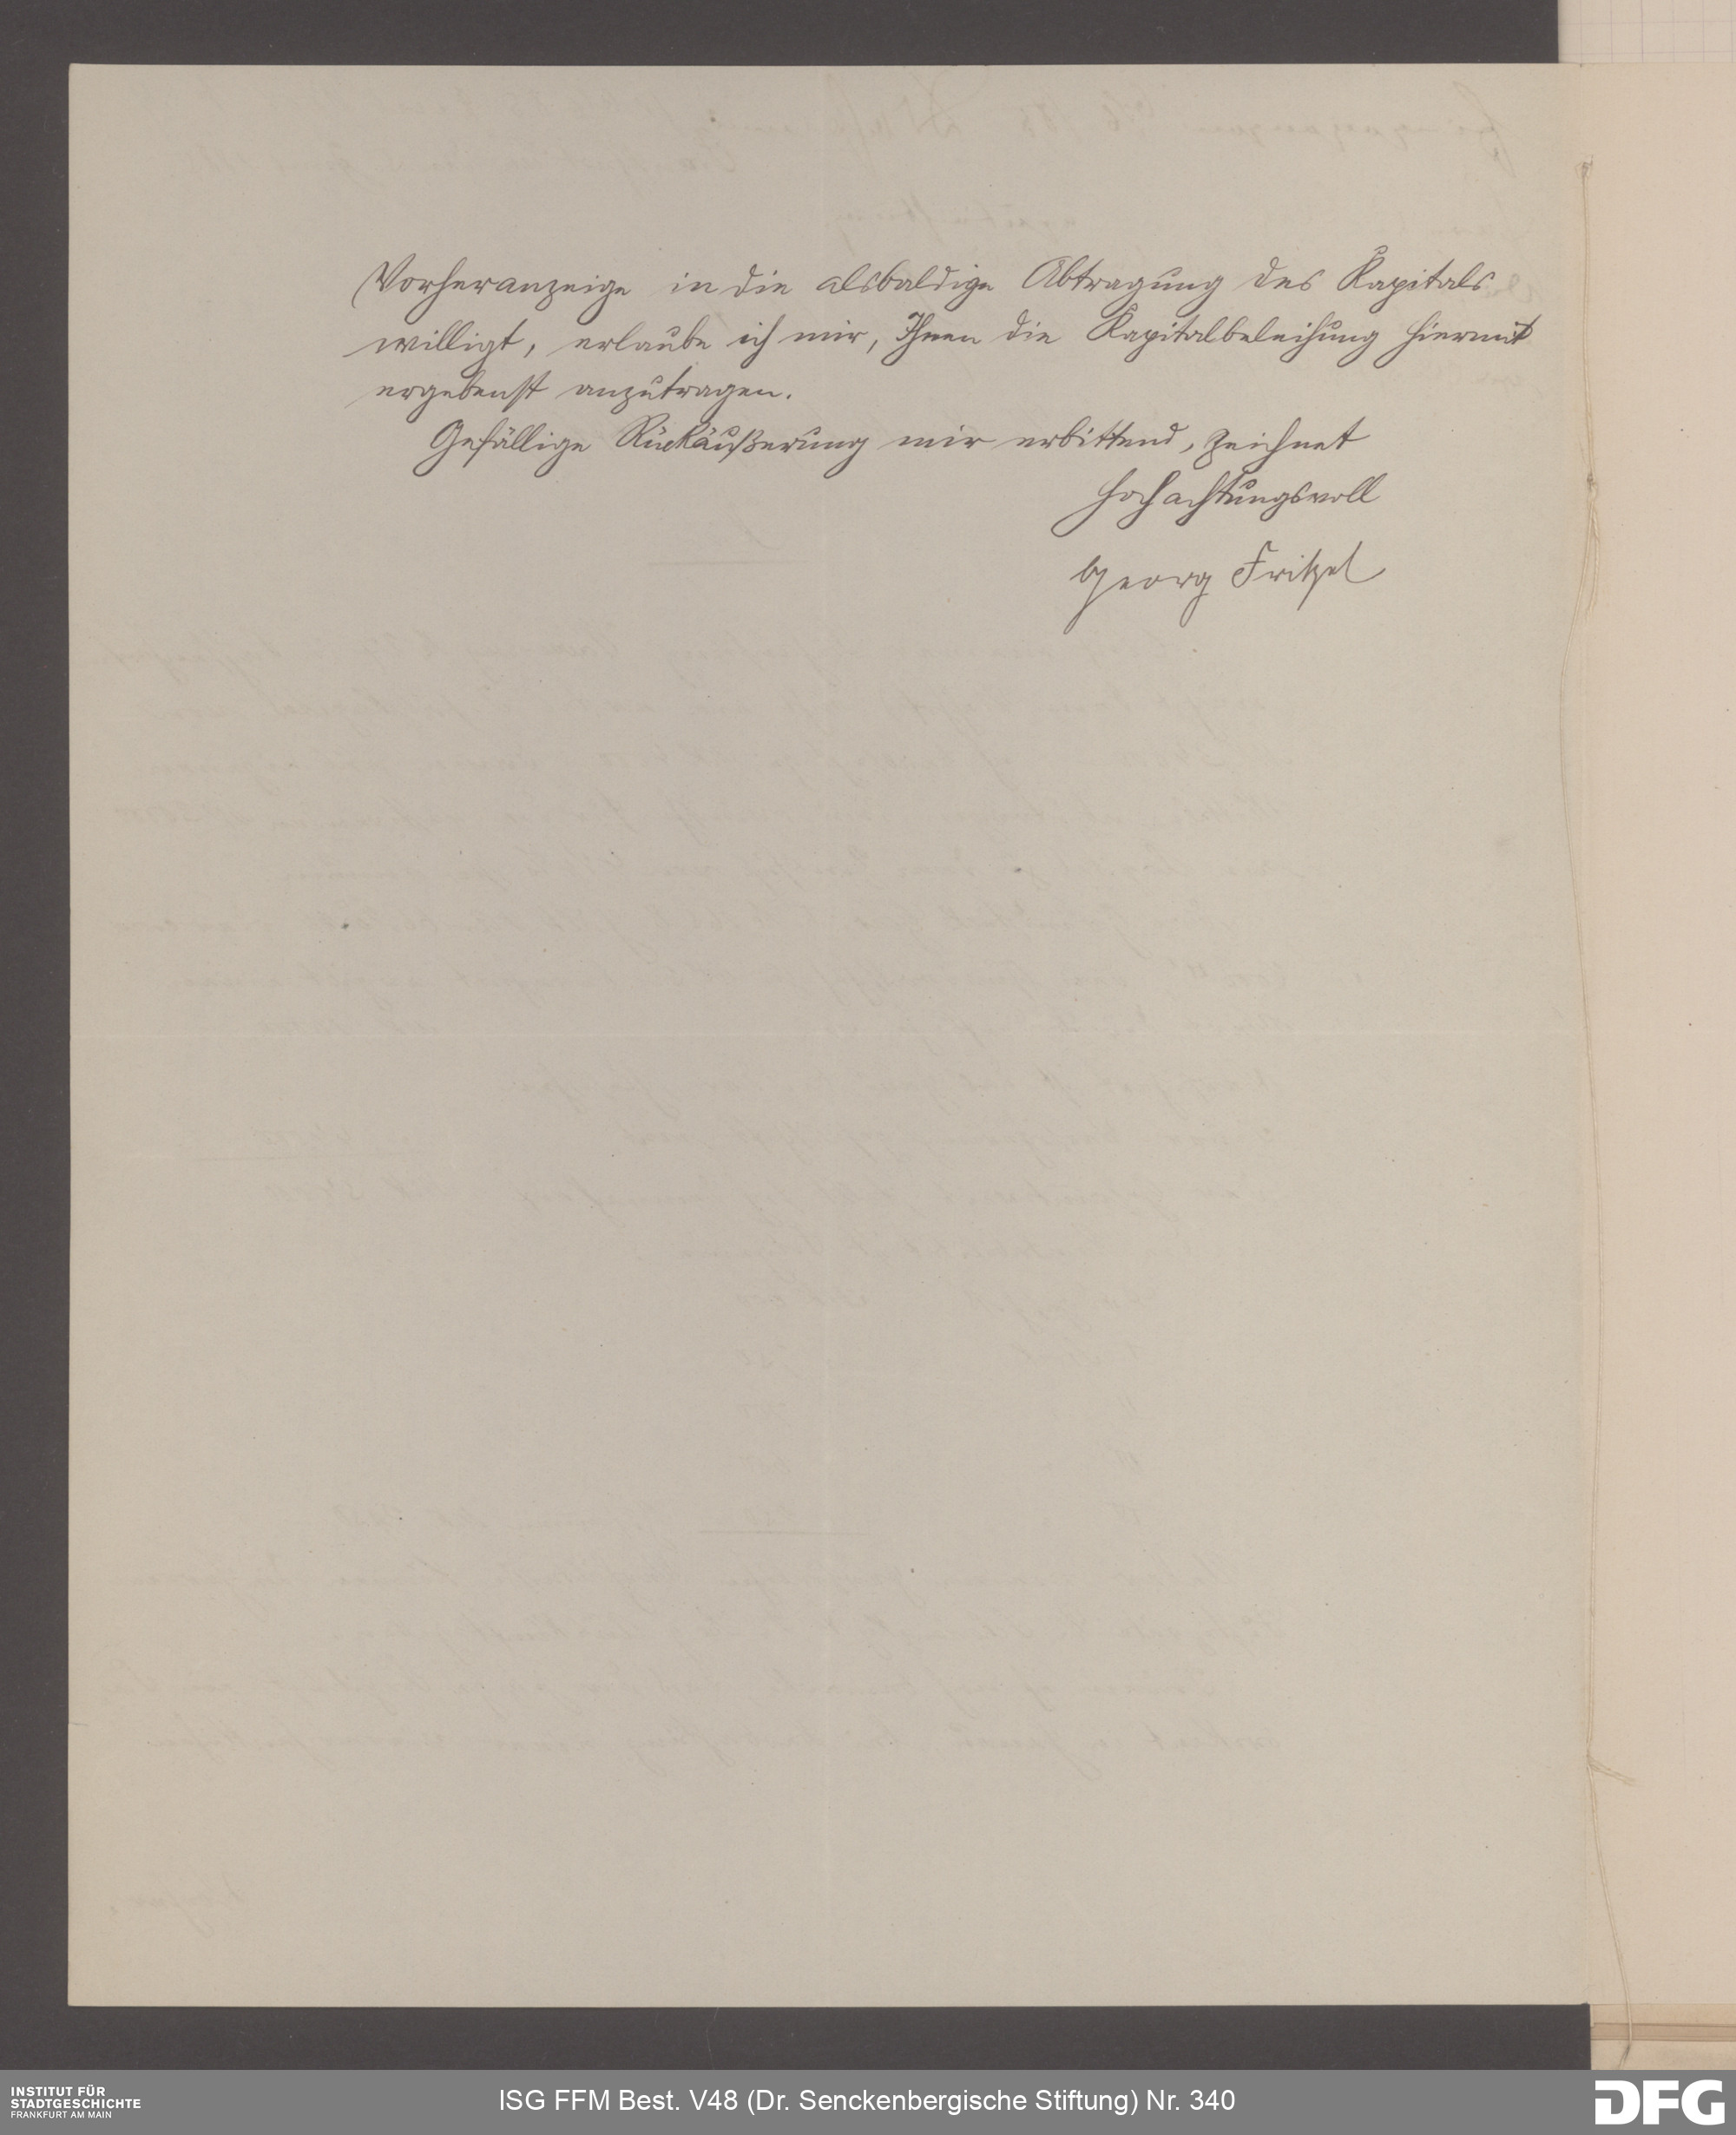 Vorheranzeige in die alsbaldige Abtragung des Kapitals
willigt, erlaube ich mir, Ihnen die Kapitalbeleihung hiermit
ergebenst anzutragen.
Gefällige Rückäußerung mir erbittend, zeichnet
hochachtungsvoll
Georg Fritzel
INSTITUT FÜR
STADTGESCHICHTE
FRANKFURT AM MAIN
ISG FFM Best. V48 (Dr. Senckenbergische Stiftung) Nr. 340
DFG